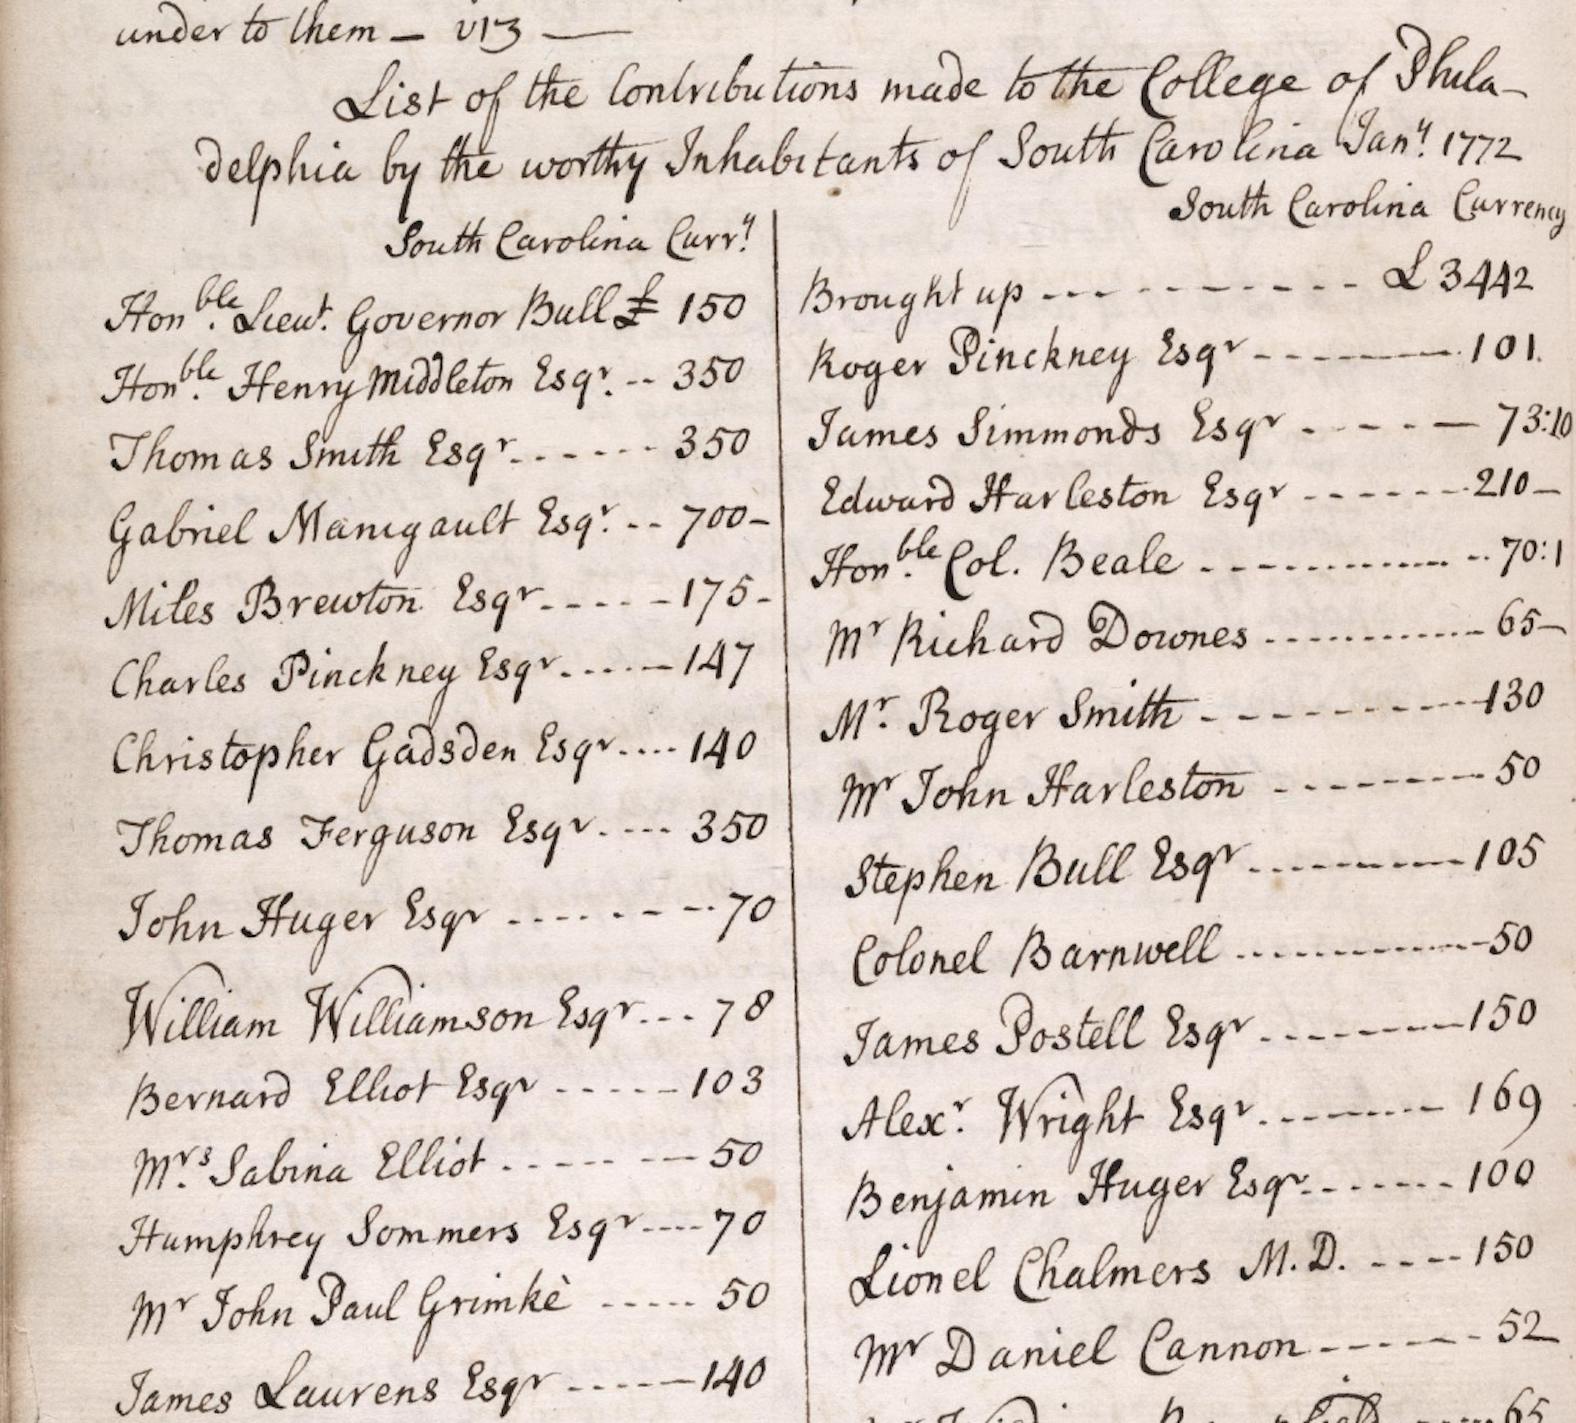 under to them — viz —
List of the Contributions made to the College of Phila-
delphia by the worthy Inhabitants of South Carolina Jany. 1772
South Carolina Curry.
Honble. Lieut. Governor Bull £ 150
Honble. Henry Middleton Esqr. -- 350
Thomas Smith Esqr. ------ 350
Gabriel Manigault Esqr. -- 700-
Miles Brewton Esqr ----- 175-
Charles Pinckney Esqr ----- 147
Christopher Gadsden Esqr ---- 140
Thomas Ferguson Esqr ---- 350
John Huger Esqr -------- 70
William Williamson Esqr --- 78
Bernard Elliot Esqr ----- 103
Mrs. Sabina Elliot ------- 50
Humphrey Sommers Esqr ---- 70
Mr John Paul Grimkè ----- 50
James Laurens Esqr ----- 140
South Carolina Currency
Brought up --------- £ 3442
Roger Pinckney Esqr ------- 101.
James Simmonds Esqr ----- 73:10
Edward Harleston Esqr ------ 210-
Honble. Col. Beale ---------- 70:1
Mr Richard Downes ---------- 65-
Mr. Roger Smith --------- 130
Mr John Harleston -------- 50
Stephen Bull Esqr -------- 105
Colonel Barnwell ---------- 50
James Postell Esqr ------- 150
Alexr. Wright Esqr ------- 169
Benjamin Huger Esqr ------- 100
Lionel Chalmers M.D. ---- 150
Mr Daniel Cannon ------ 52
65